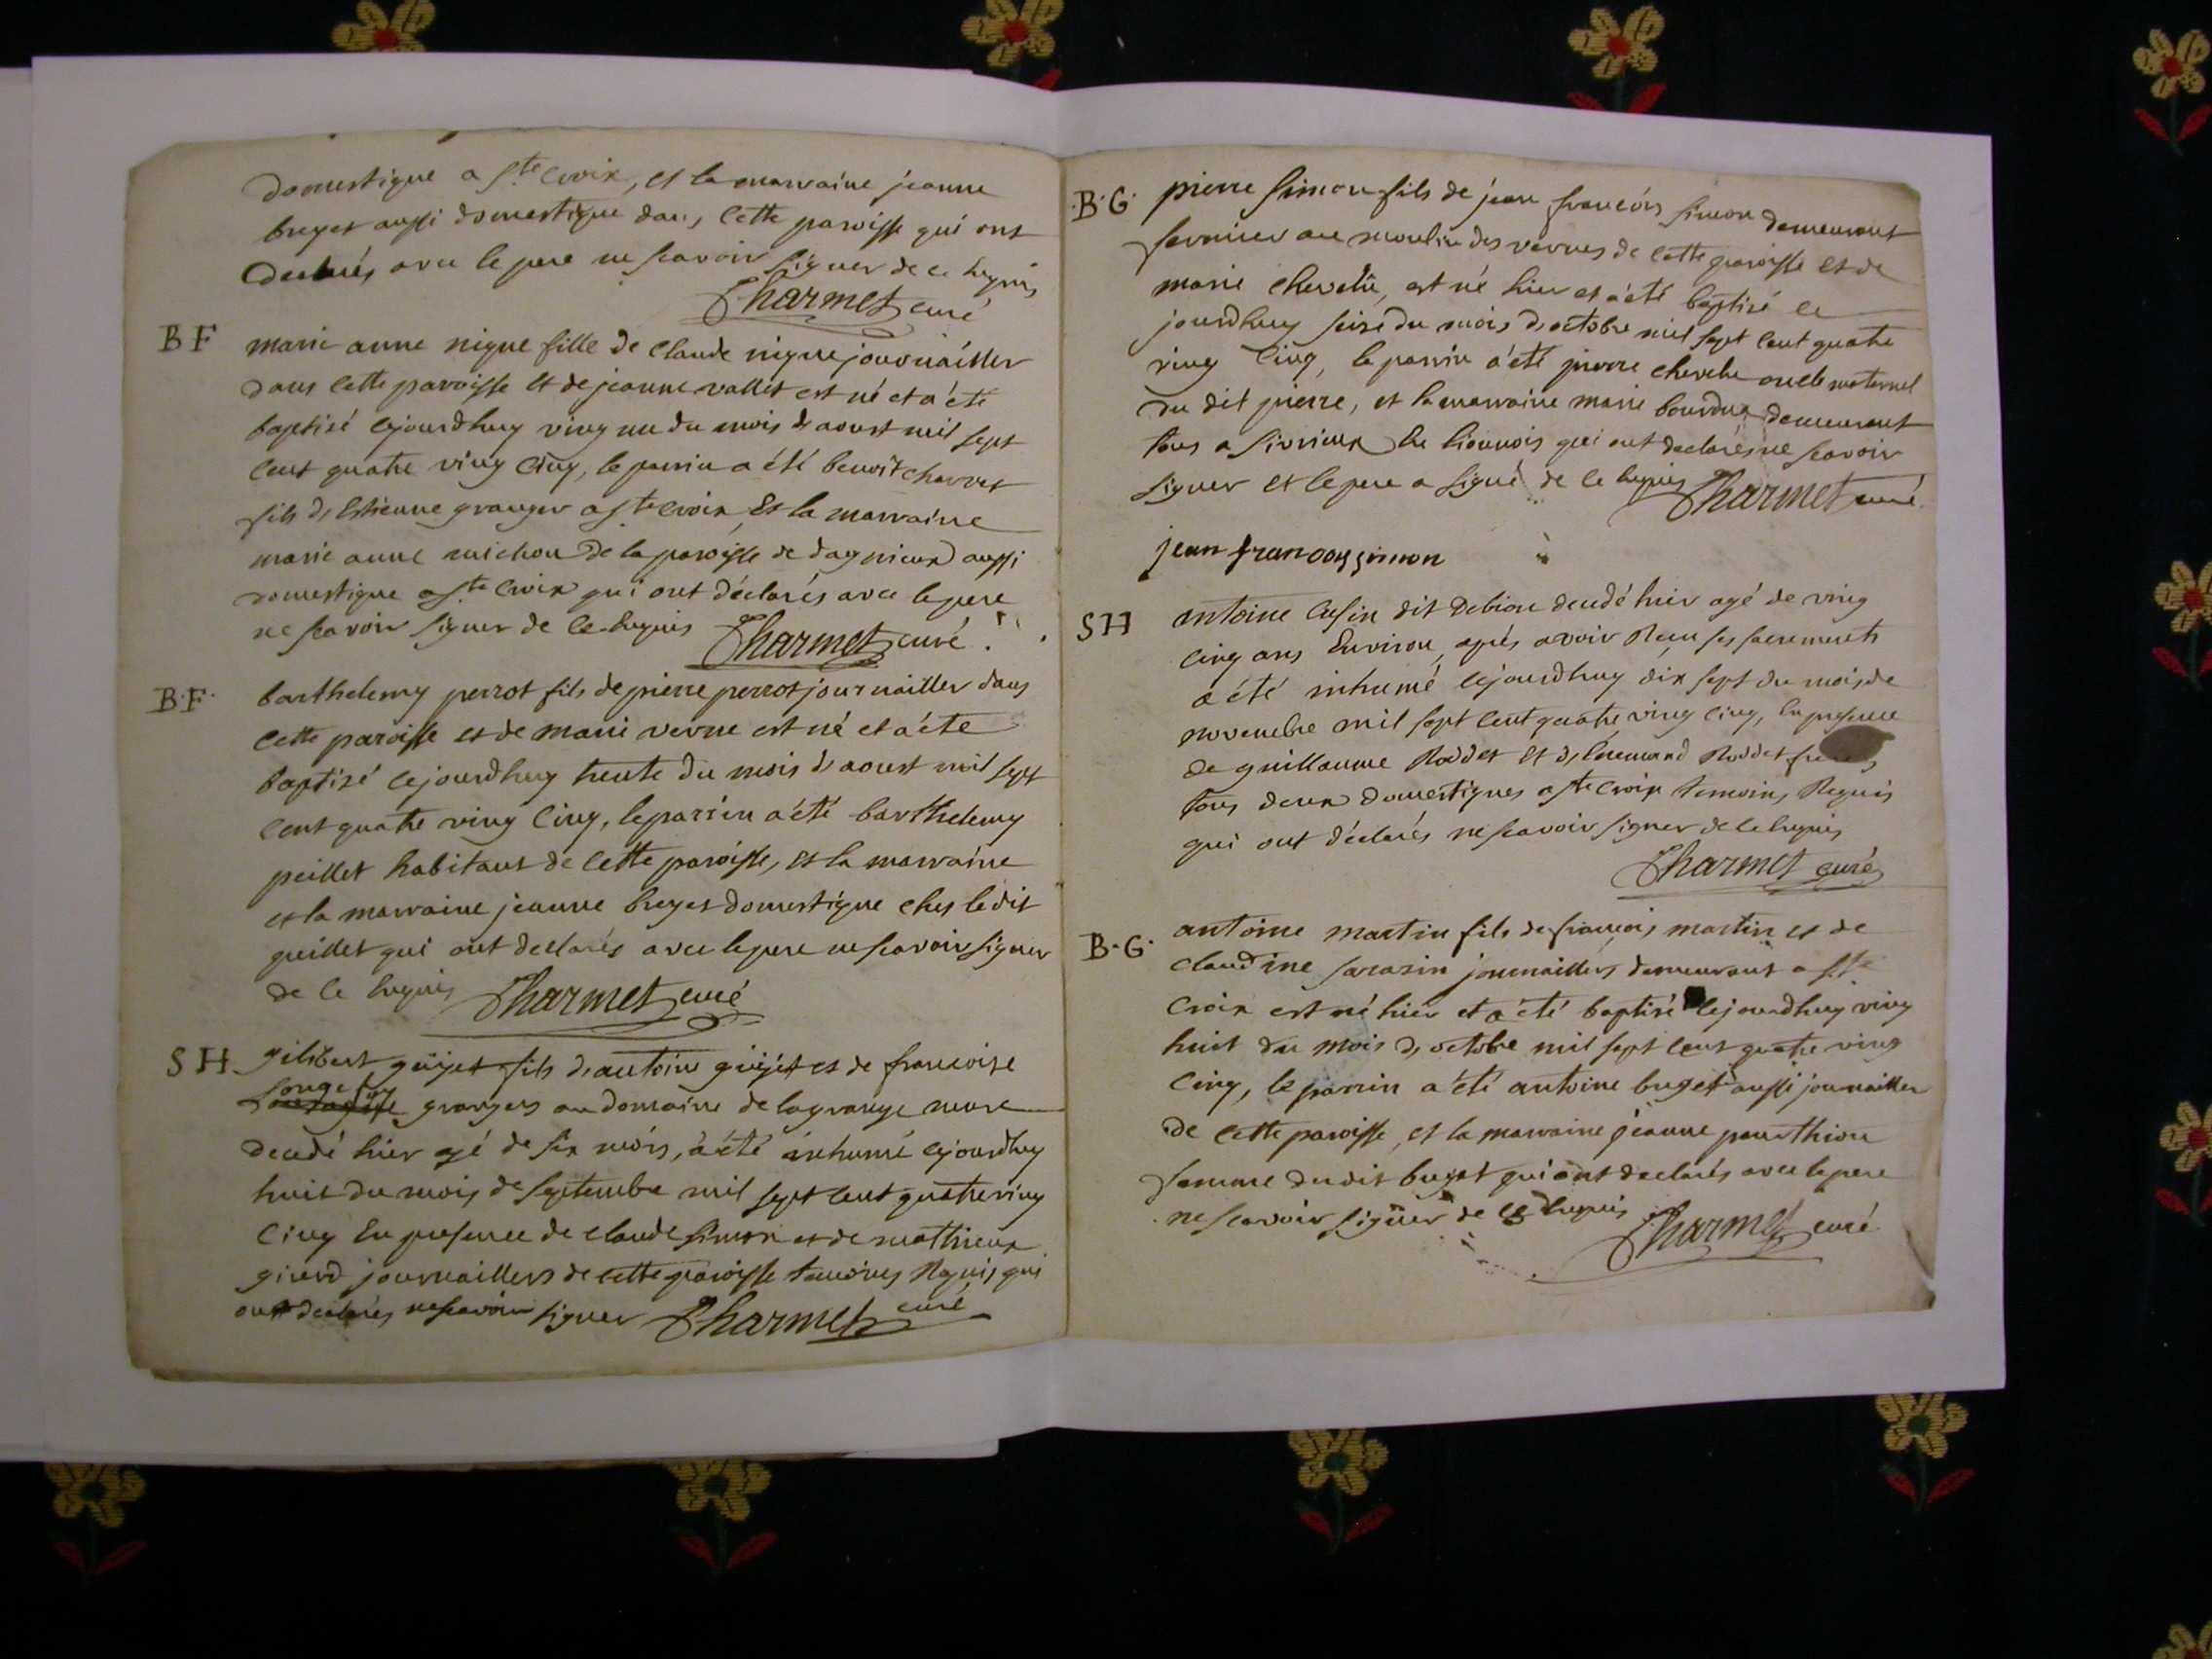 domestique a Ste croix, et la marraine jeanne
breyet aussi domestique dans cette paroisse qui ont
declarés avec le pere ne scavoir signer de ce enquis
Charmet curé
BF marie anne nique fille de claude nique journailler
dans cette paroisse et de jeanne vallet est né et a été
baptisé cejourdhuy ving un du mois d'aoust mil sept
cent quatre ving cinq, le parrin a été benoit charvet
fils d'Estienne granger a ste croix Et la marraine
marie anne michon de la paroisse de dagnieux aussi
domestique a ste croix qui ont déclarés avec le pere
ne scavoir signer de ce enquis Charmet curé
B.F. barthelemy perrot fils de pierre perrot journailler dans
cette paroisse et de marie verne est né et a été
baptisé cejourdhuy trente du mois d'aoust mil sept
cent quatre ving cinq, le parrin a été barthelemy
peillet habitant de cette paroisse, et la marraine
et la marraine jeanne breyet domestique ches le dit
peillet qui ont declarés avec le pere ne scavoir signer
de ce enquis Charmet curé
SH gilibert guijet fils d'antoine guijet et de francoise
grangers au domaine de la grange neuve
decedé hier agé de six mois, a été inhumé cejourdhuy
huit du mois de septembre mil sept cent quatre ving
cinq En presence de claude simon et de matthieux
girerd journaillers de cette paroisse temoins Requis qui
ont declarés ne scavoir signer Charmet curé
B.G. pierre simon fils de jean francois simon demeurant
fermier au moulin des vernes de cette paroisse et de
marie chevelu, est né hier et a été baptisé ce
jourdhuy seize du mois d'octobre mil sept cent quatre
ving cinq, le parrin a été pierre chevelu oncle maternel
du dit pierre, et la marraine marie demeurant
tous a sivrieux En lionnois qui ont declarés ne scavoir
signer et le pere a signé de ce enquis Charmet curé
jean francoys simon
SH antoine cusin dit debion decedé hier agé de ving
cinq ans Environ, aprés avoir Recu ses sacrements
a été inhumé cejourdhuy dix sept du mois de
novembre mil sept cent quatre ving cinq, En presence
de guillaume Roddet et d'Ennemand Roddet freres
tous deux domestiques a ste croix temoins Requis
qui ont déclarés ne scavoir signer de ce enquis
Charmet curé
B.G. antoine martin fils de francois martin et de
claudine sarasin journaillers demeurant a ste
croix est né hier et a été baptisé cejourdhuy ving
huit du mois d'octobre mil sept cent quatre ving
cinq, le parrin a été antoine buget aussi journailler
de cette paroisse, et la marraine jeanne ponthion
femme du dit buget qui ont declarés avec le pere
ne scavoir signer de ce enquis Charmet curé